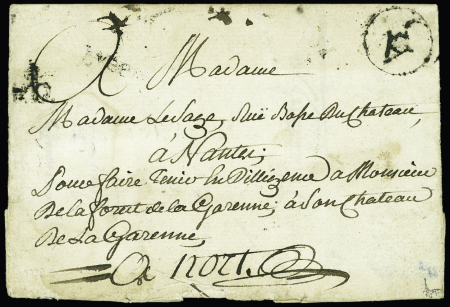 Madame
Madame LeSage, Ruë Basse Du Chateau,
à Nantes;
Pour faire Tenir En Dilligence a Monsieur
De la foret de la Garenne; à Son Chateau
De La Garenne,
A nort.